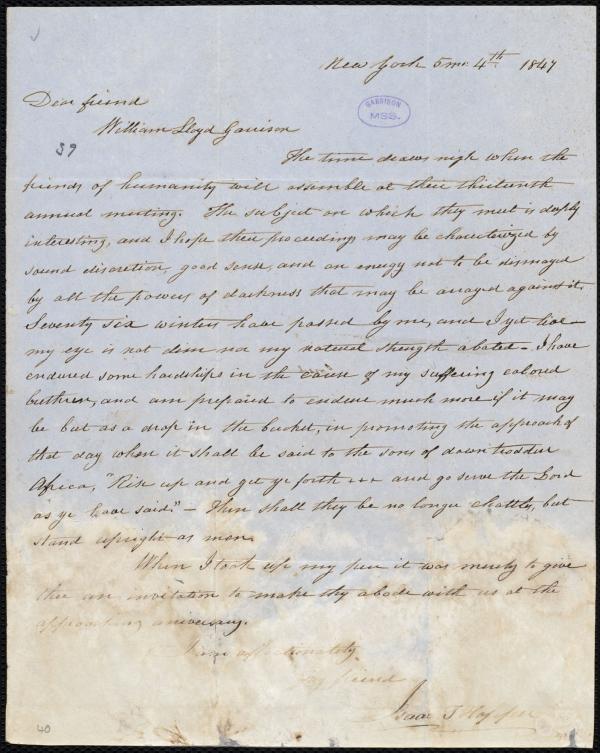 New York 5 mo. 4th. 1847
Dear friend
William Lloyd Garrison
GARRISON
MSS.
39
The time draws nigh when the
friends of humanity will assemble at their thirteenth
annual meeting. The subject on which they meet is deeply
interesting, and I hope their proceedings may be characterized by
sound discretion, good sense, and an energy not to be dismayed
by all the powers of darkness that may be arrayed against it.
Seventy six winters have passed by me, and I yet live—
my eye is not dim nor my natural strength abated— I have
endured some hardships in the cause of my suffering colored
brethren, and am prepared to endure much more if it may
be but as a drop in the bucket, in promoting the approach of
that day when it shall be said to the sons of downtrodden
Africa, "Rise up and get ye forth +++ and go serve the Lord
as ye have said."— Then shall they be no longer chattles, but
stand upright as men.
When I took up my pen it was merely to give
thee an invitation to make thy abode with us at the
approaching aniversary.
I am affectionately
thy friend
Isaac T Hopper
40